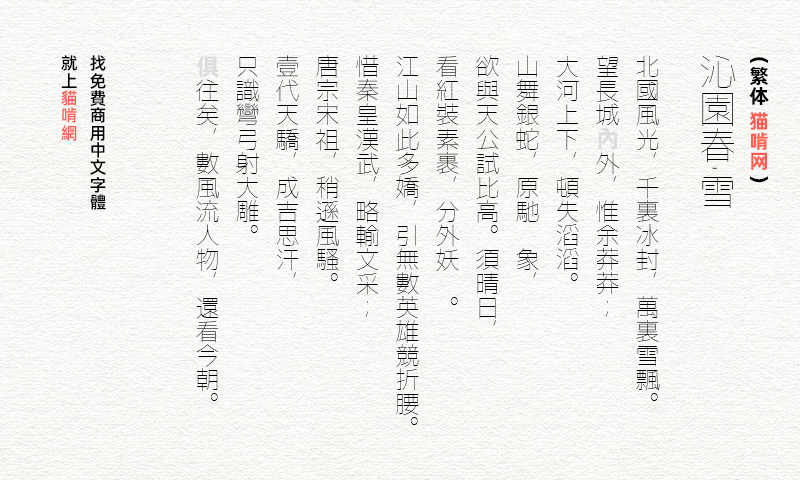 (繁体 猫啃网)
沁園春·雪
北國風光，千裏冰封，萬裏雪飄。
望長城內外，惟余莽莽；
大河上下，頓失滔滔。
山舞銀蛇，原馳 象，
欲與天公試比高。須晴日，
看紅裝素裹，分外妖 。
江山如此多嬌，引無數英雄競折腰。
惜秦皇漢武，略輸文采；
唐宗宋祖，稍遜風騷。
壹代天驕，成吉思汗，
只識彎弓射大雕。
俱往矣，數風流人物，還看今朝。
找免費商用中文字體
就上貓啃網